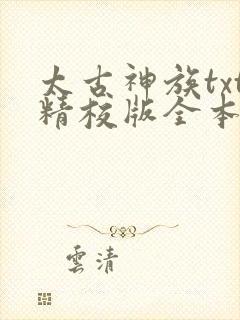 太古神族txt
精校版全本
雲清